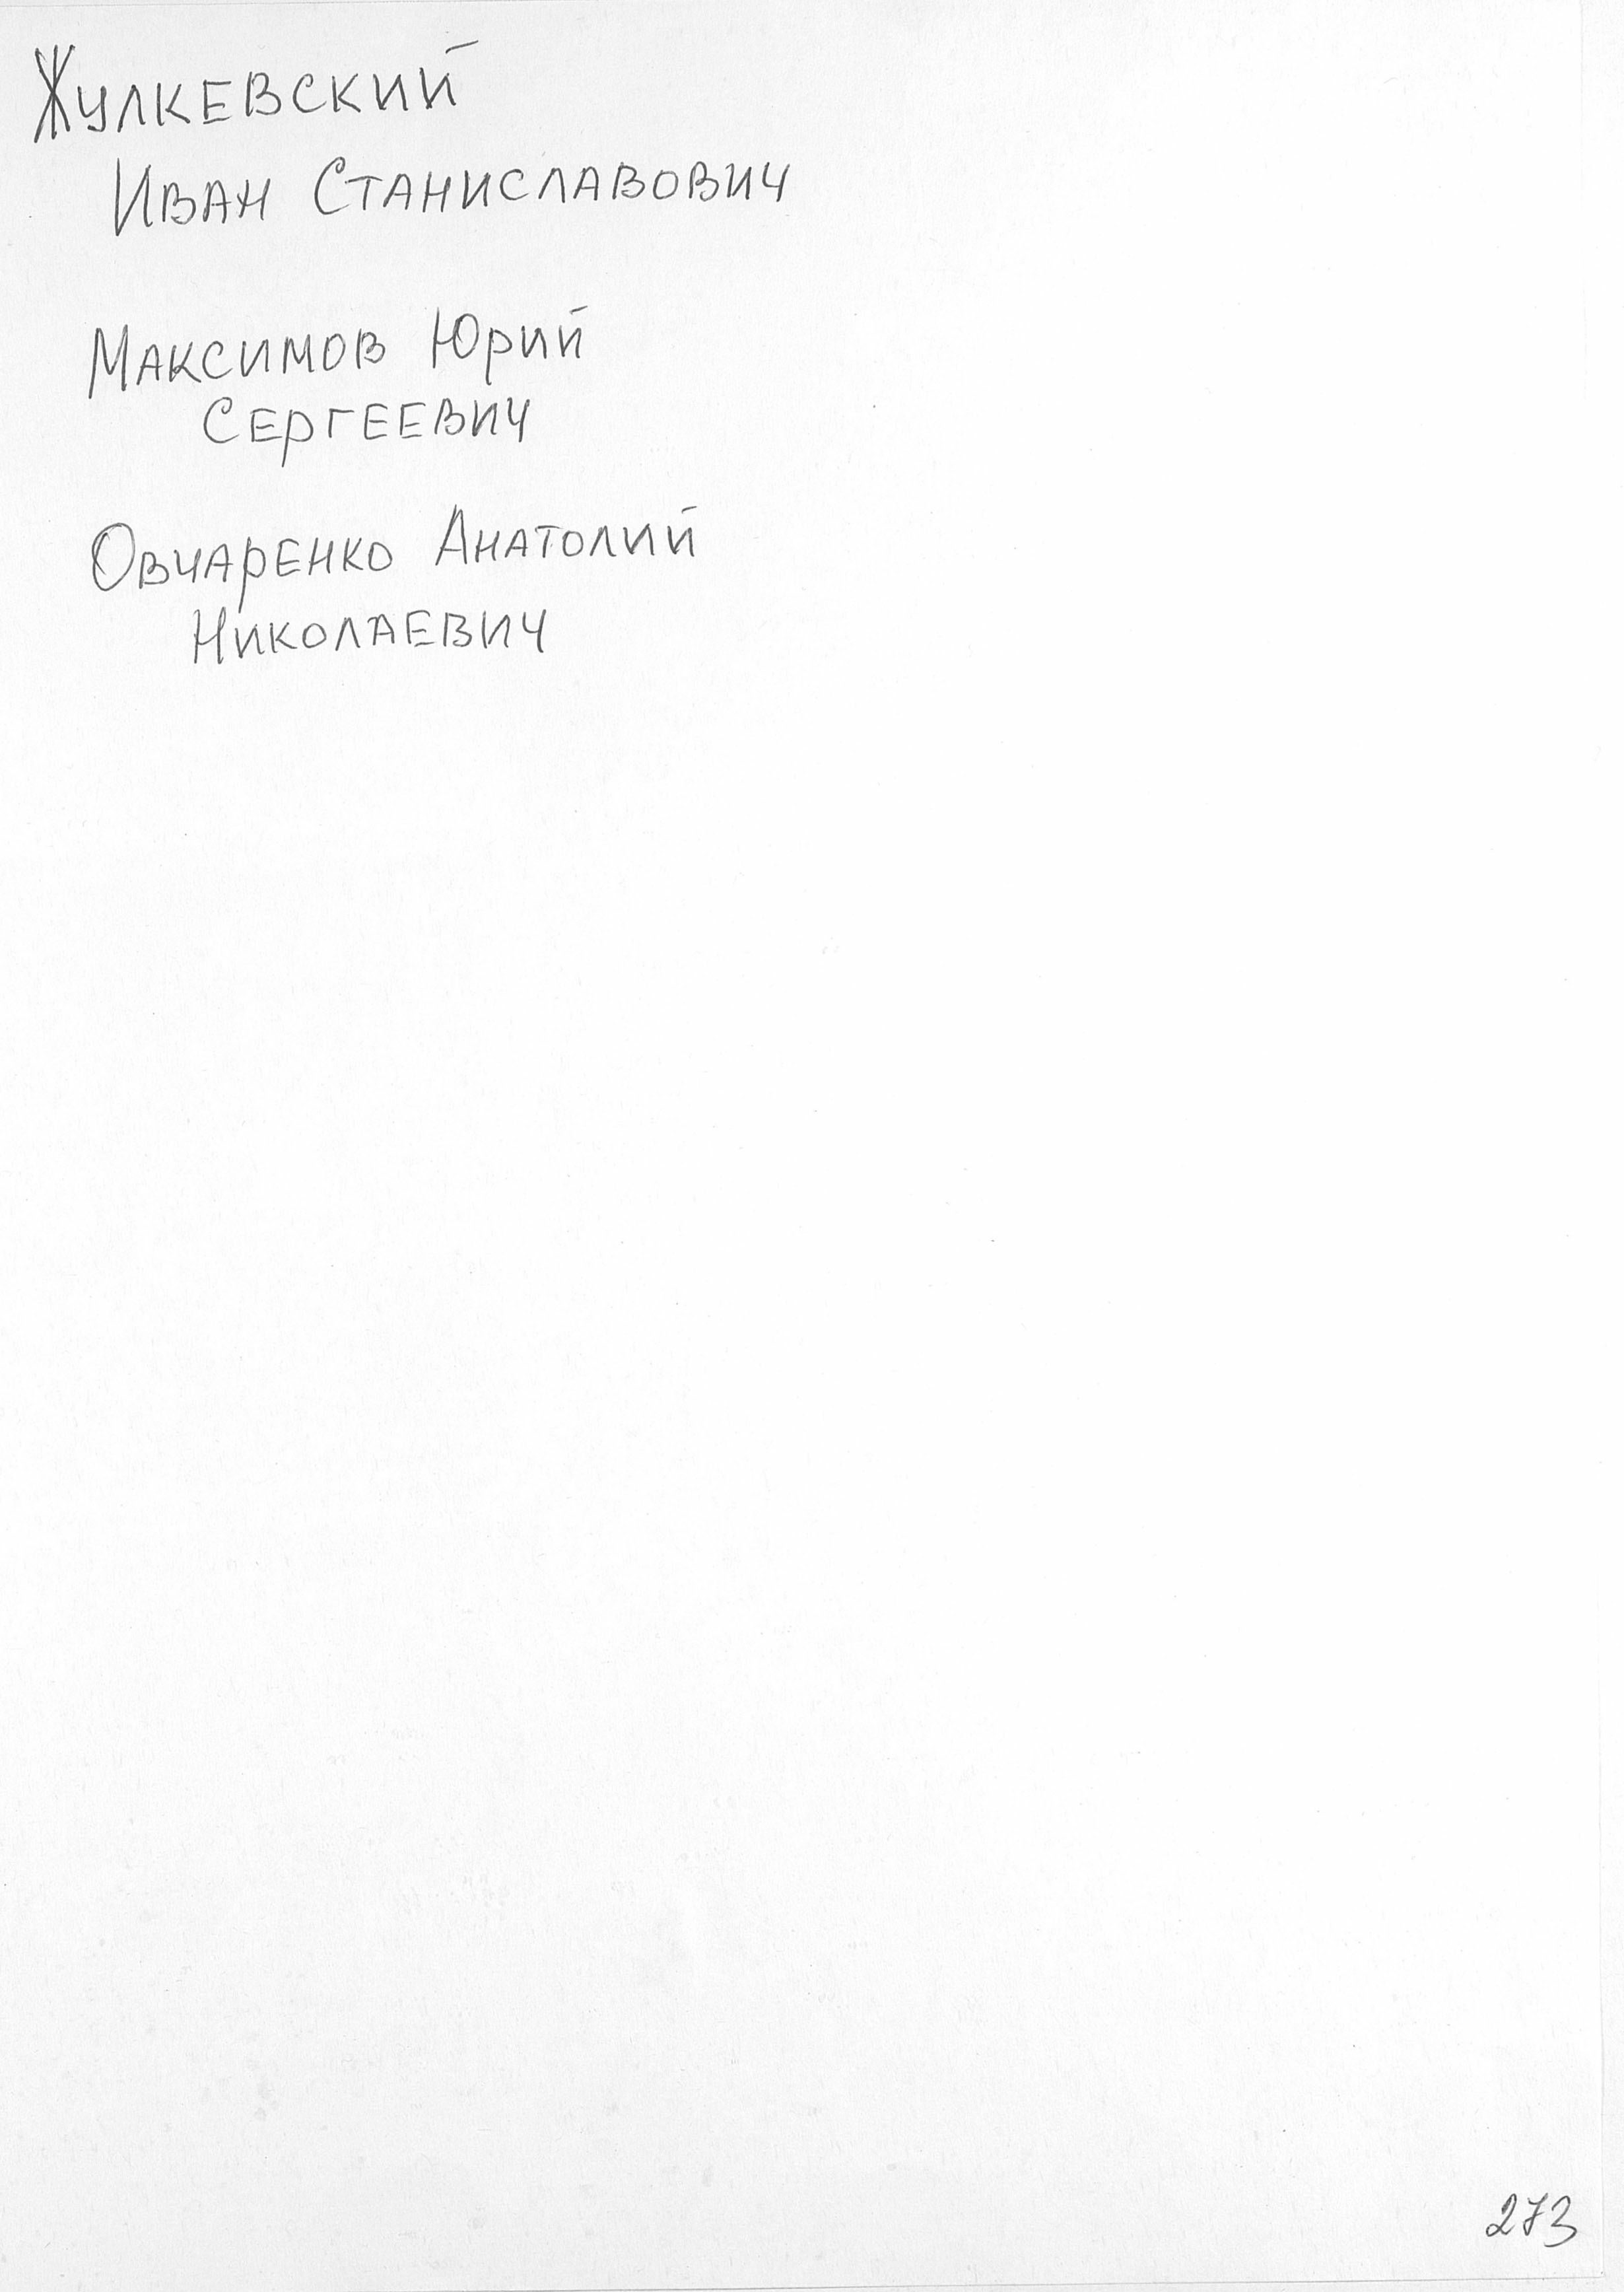 Жулкевский
Иван Станиславович
Максимов Юрий
Сергеевич
Овчаренко Анатолий
Николаевич
273